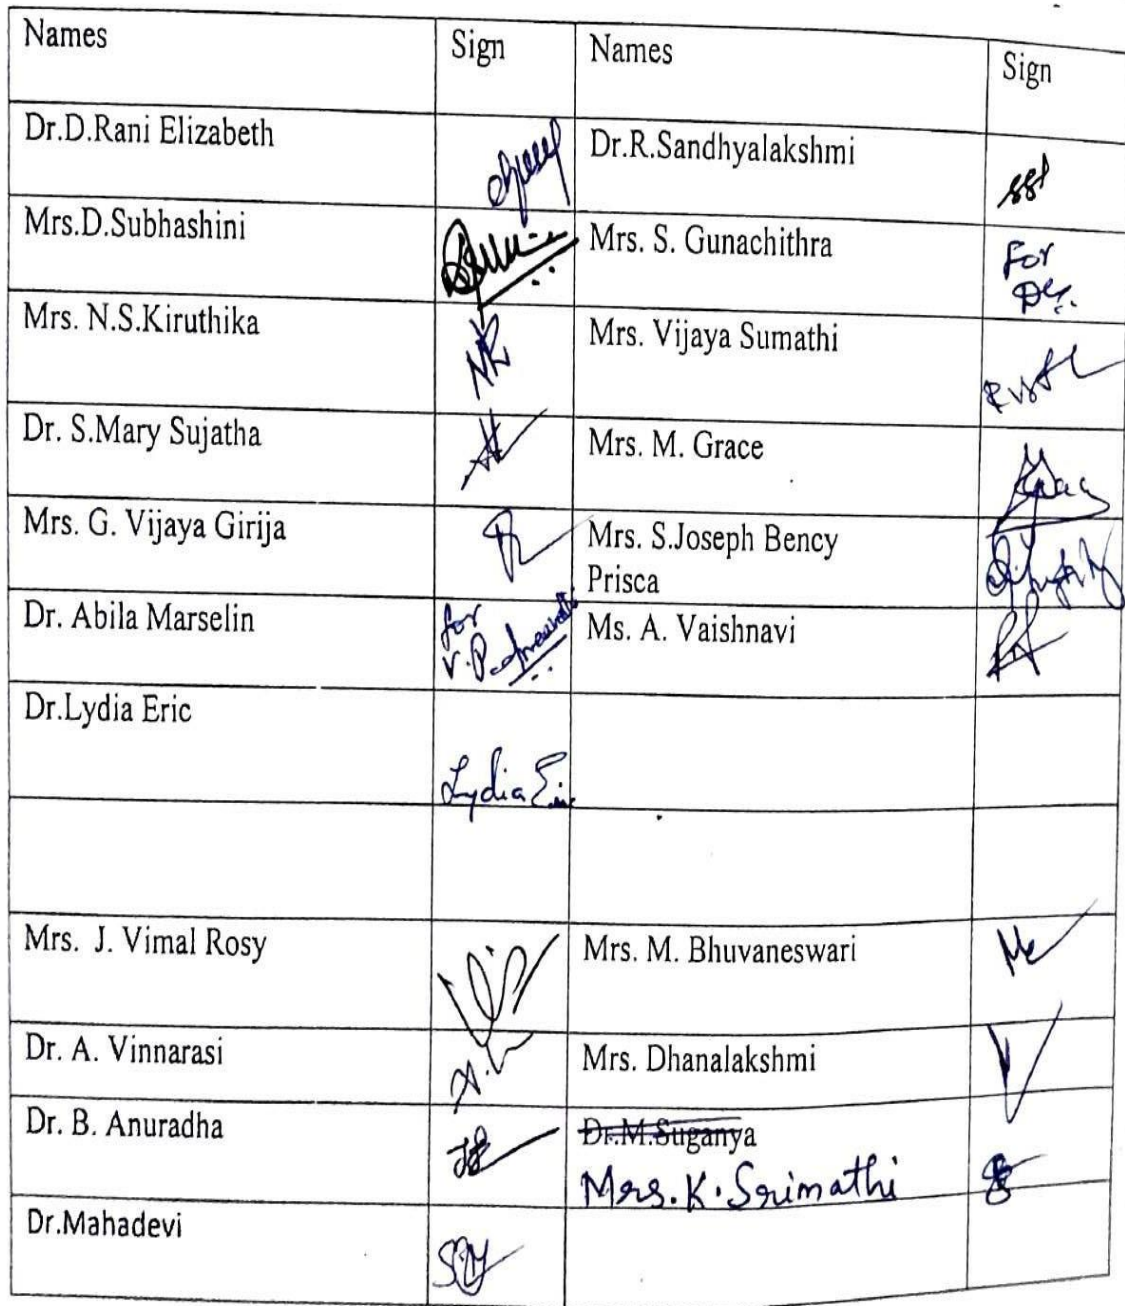 Names Sign Names Sign
Dr.D.Rani Elizabeth Dr.R.Sandhyalakshmi
Mrs.D.Subhashini Mrs. S. Gunachithra For
Mrs. N.S.Kiruthika Mrs. Vijaya Sumathi
Dr. S.Mary Sujatha Mrs. M. Grace
Mrs. G. Vijaya Girija Mrs. S.Joseph Bency
Prisca
Dr. Abila Marselin for Ms. A. Vaishnavi
Dr.Lydia Eric
Lydia
Mrs. J. Vimal Rosy Mrs. M. Bhuvaneswari
Dr. A. Vinnarasi Mrs. Dhanalakshmi
Dr. B. Anuradha Dr.M.Suganya
Mrs. K. Srimathi
Dr.Mahadevi